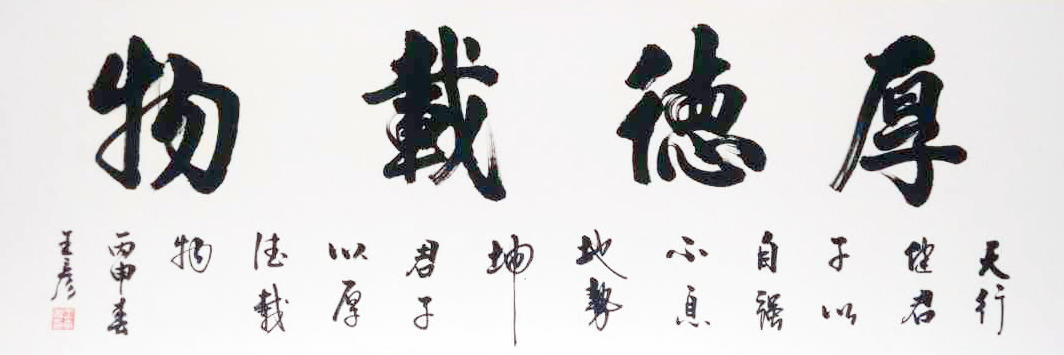 厚德载物
天行
健君
子以
自强
不息
地势
坤
君子
以厚
德载
物
丙申春
王彦